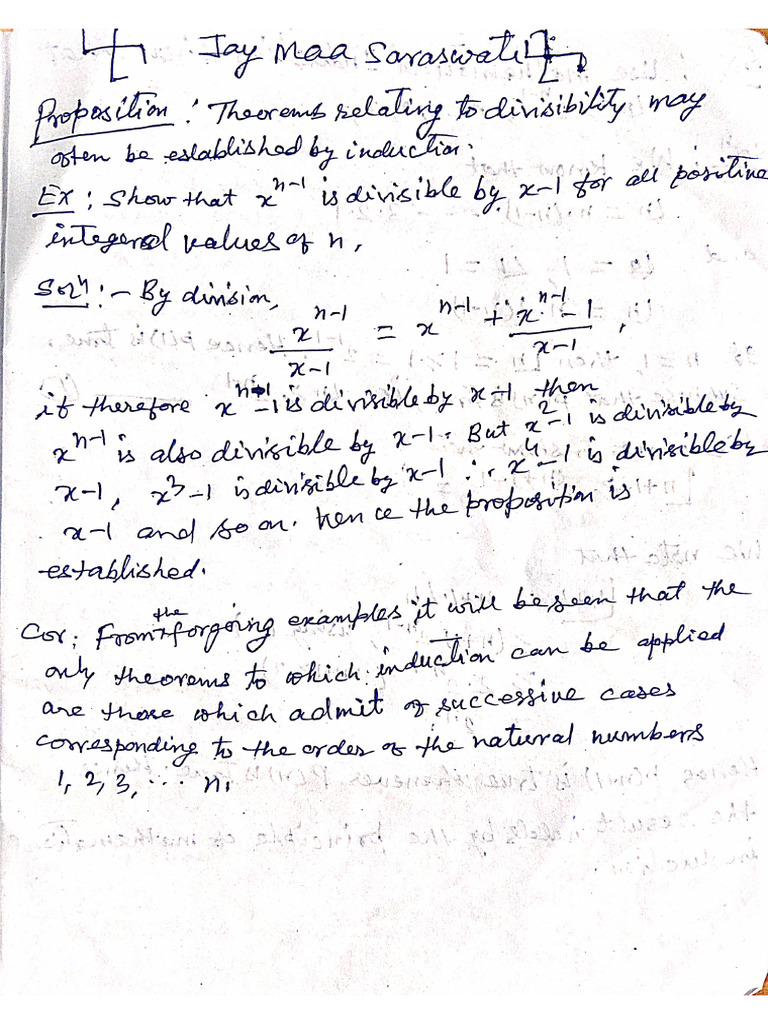 卐 Jay Maa Saraswati 卐
Proposition : Theorems relating to divisibility may
often be established by induction.
Ex : Show that x^{n-1} is divisible by x-1 for all positive
integeral values of n,
Solⁿ :- By division,
x^{n-1} / x-1 = x^{n-1} + x^{n-1}-1 / x-1 ,
if therefore x^{n-1}-1 is divisible by x-1 then
x^{n-1} is also divisible by x-1. But x²-1 is divisible by
x-1, x³-1 is divisible by x-1 ∴ x⁴-1 is divisible by
x-1 and so on. hence the proposition is
established.
Cor ; From the forgoing examples it will be seen that the
only theorems to which induction can be applied
are those which admit of successive cases
corresponding to the order of the natural numbers
1, 2, 3, ... n.